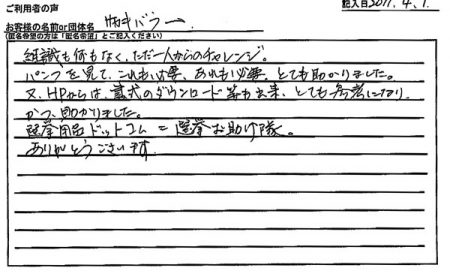 ご利用者の声
記入日2011.4.1.
お客様の名前or団体名
(匿名希望の方は「匿名希望」とご記入ください)
組織も何もなく、ただ一人からのチャレンジ。
パンフを見て、これも必要、あれも必要、とても助かりました。
又、HPからは、書式のダウンロード等も出来、とても参考になり、
かつ、助かりました。
選挙用品ドットコム = 選挙お助け隊。
ありがとうございます